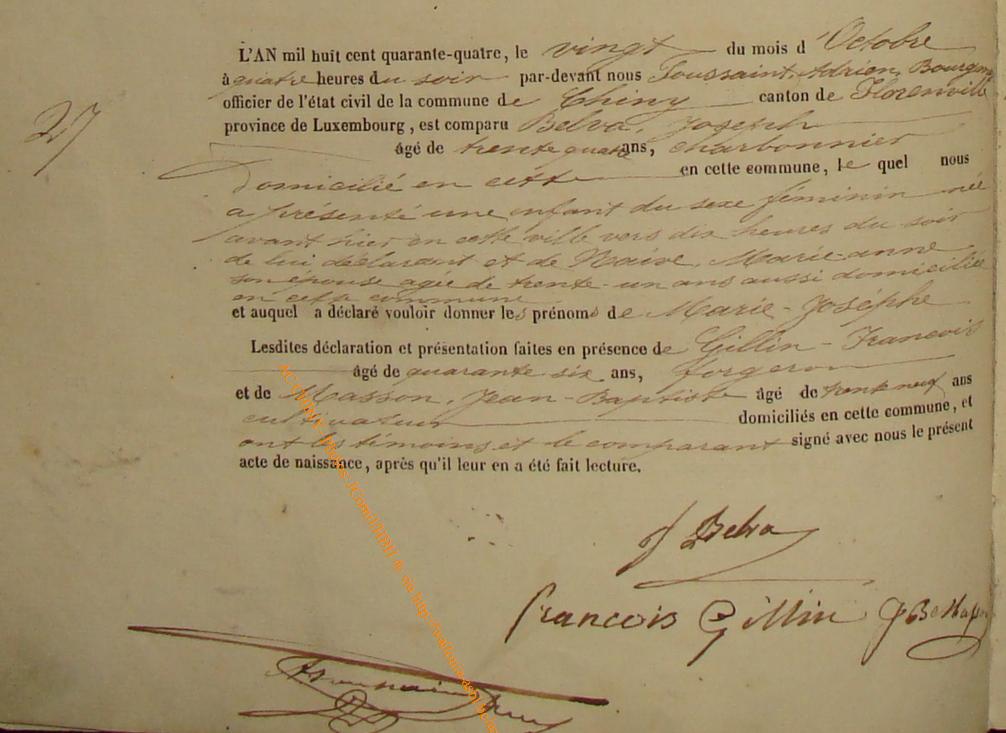 27
L'AN mil huit cent quarante-quatre, le vingt du mois d'Octobre
à quatre heures du soir par-devant nous Toussaint, Adrien, Bourgui
officier de l'état civil de la commune de Chiny canton de Florenville
province de Luxembourg, est comparu Belva, Joseph
âgé de trente quatre ans, charbonnier
Domicilié en cette en cette commune, le quel nous
a présenté une enfant du sexe féminin née
avant hier en cette ville vers dix heures du soir
de lui déclarant et de Naive, Marie-anne
son épouse agée de trente-un ans aussi domiciliée
en cette commune
et auquel a déclaré vouloir donner les prénoms de Marie-Josèphe
Lesdites déclaration et présentation faites en présence de Gillin-François
âgé de quarante six ans, forgeron
et de Masson, Jean-Baptiste âgé de trente neuf ans
cultivateur domiciliés en cette commune, et
ont les témoins et le comparant signé avec nous le présent
acte de naissance, après qu'il leur en a été fait lecture.
J Belva
francois Gillin JB Masson